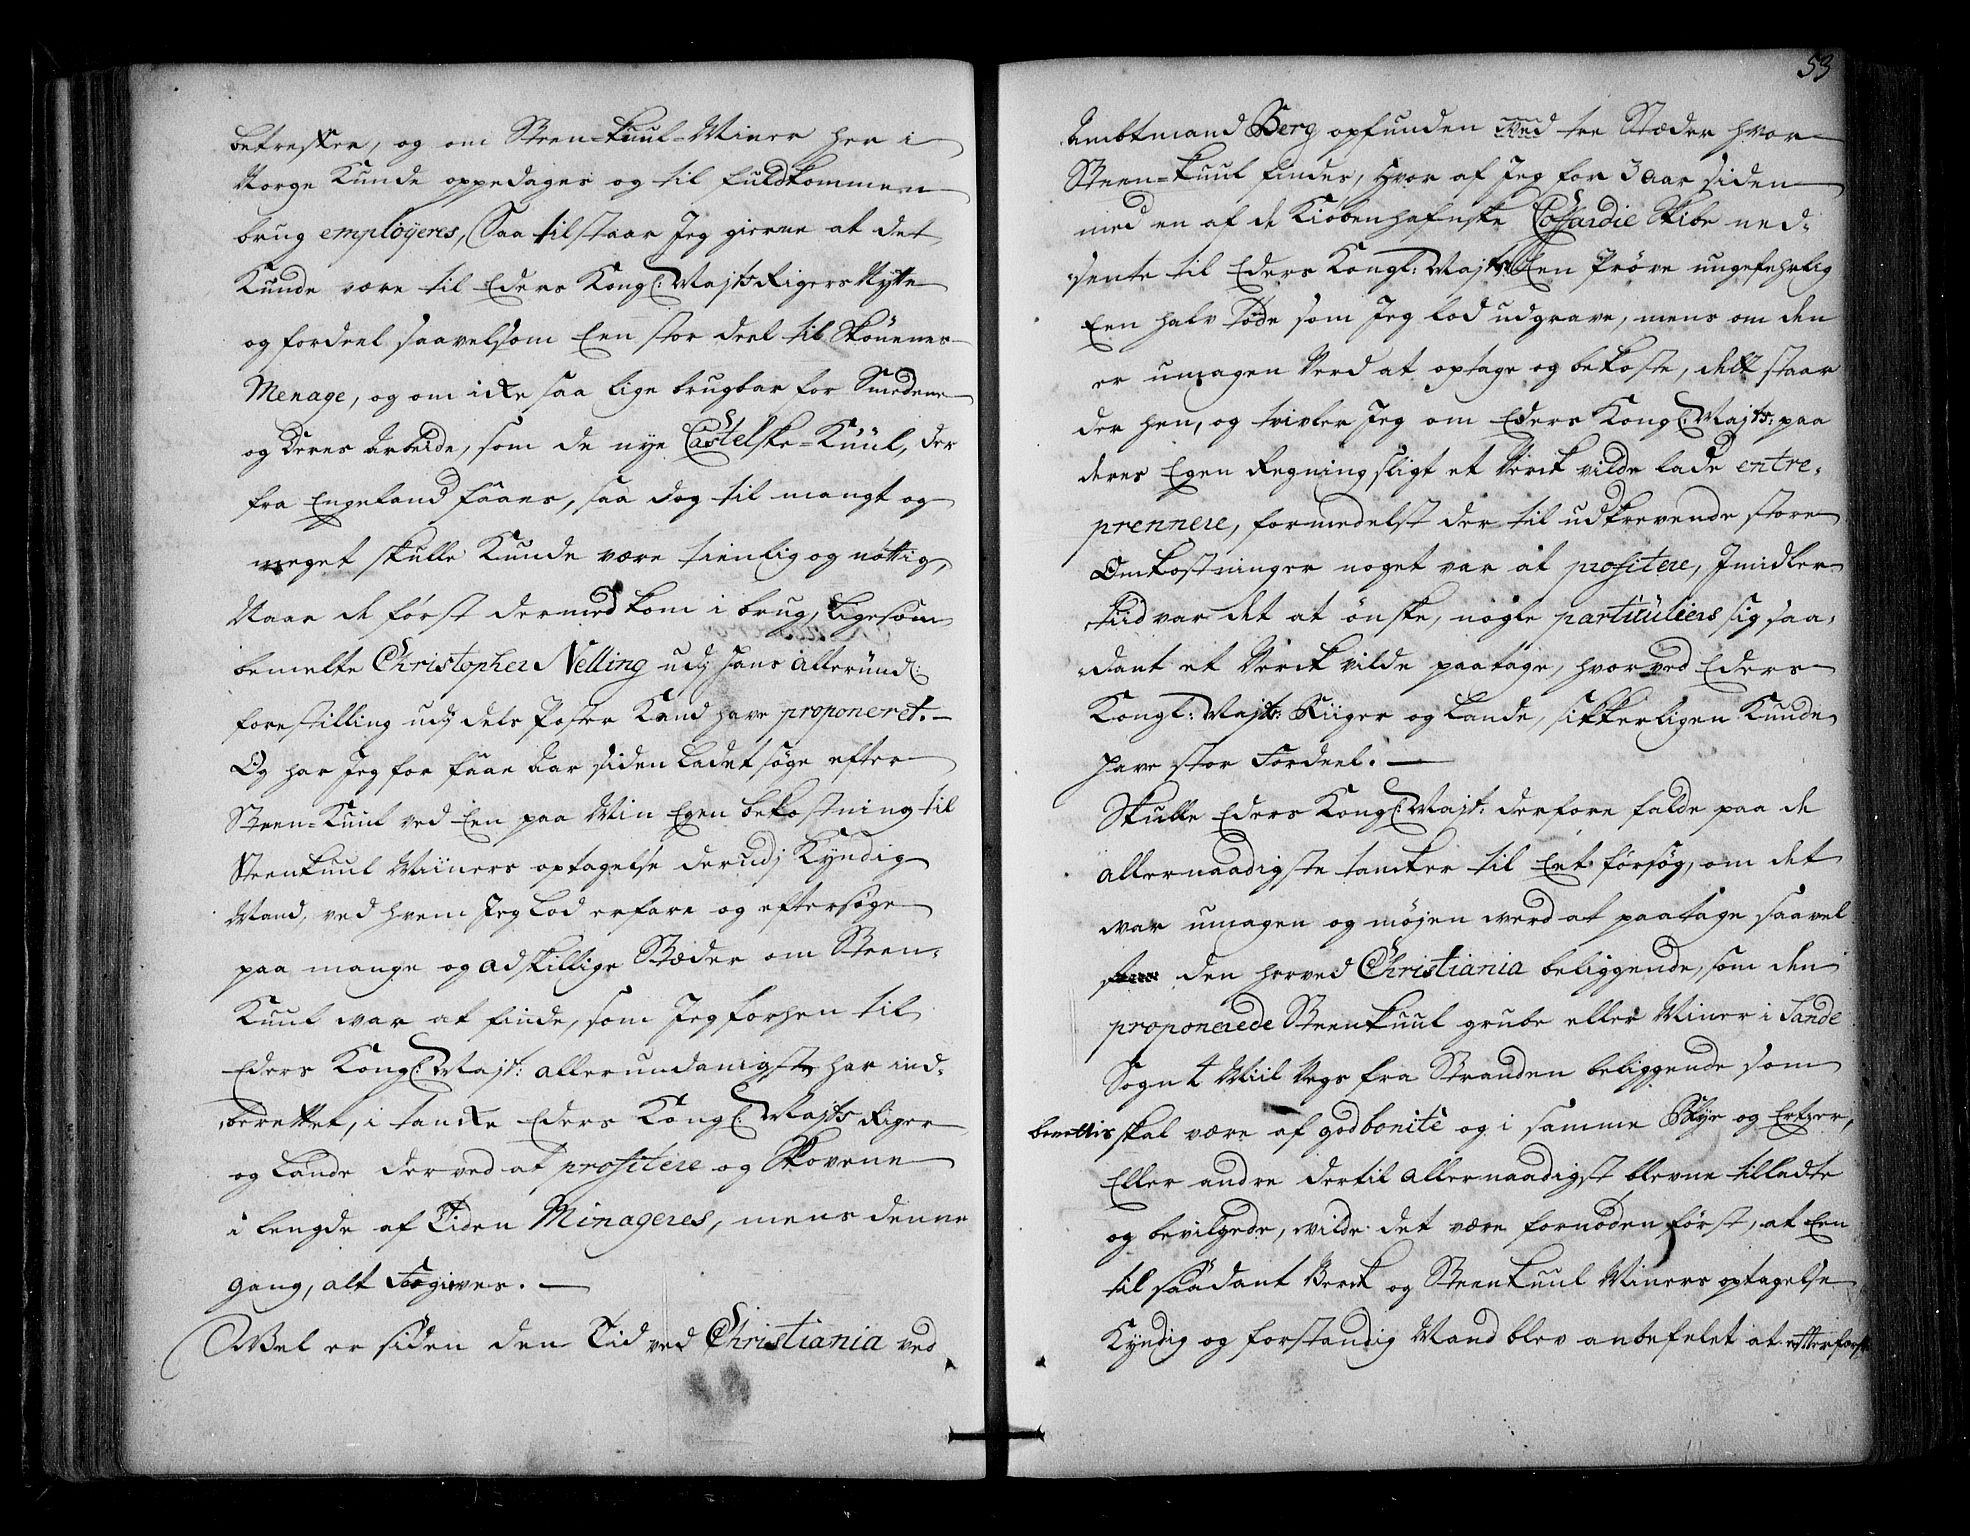 betreffer, og om Steen-Kuul-Miner her i
Norge Kunde oppedages og til fuldkommen
brug employeres, Saa tilstaar Jeg gierne at det
Kunde være til Eders Kongl: Majts Rigers Nytte
og fordeel saavelsom Een stor deel til Skouenes
Menage, og om icke saa lige brugbar for Smedene
og deres Arbeide, som de nye Castelske-Kuul, der
fra Engeland faaes, saa dog til mangt og
meget skulle Kunde være tienlig og nöttig,
Naar de først dermed kom i brug, Ligesom
bemelte Christopher Nelling udj hans allerund:
forestilling udj dets Poster Kand have proponeret.—
Og har Jeg for faae Aar siden Ladet søge efter
Steen-Kuul ved Een paa Min Egen bekostning til
Steenkuul Miiners optagelse derudj Kyndig
Mand, ved hvem Jeg Lod erfare og eftersøge
paa mange og adskillige Stæder om Steen-
Kuul war at finde, som Jeg forhen til
Eders Kongl: Majt: allerundanigst har ind-
berettet, i tancke Eders Kongl: Majts Riger
og Lande derved at profitere og Skovene
i lengde af Tiden Minageres, mens denne
gang, alt Forgiewes. —
Wel er siden den Tid ved Christiania ved
53
Ambtmand Berg opfunden ved tre Stæder hvor
Steen-Kuul findes, Hvor af Jeg for 3 Aar siden
med en af de Kiöbenhafnske Coffardie Skibe ned-
sente til Eders Kongl: Majts Een Pröve ungefehrlig
Een halv Töde som Jeg lod udgrave, mens om den
er umagen Verd at optage og bekoste, dett staar
der hen, og tvivler Jeg om Eders Kongl: Majts: paa
deres Egen Regning sligt et Verck vilde lade entre-
prennere, formedelst der til udkrevende store
Omkostninger noget var at profitere, Imidler-
tiid var det at önske, nogle particuliers sig saa-
dant et Verck vilde paatage, hvorved Eders
Kongl: Majts: Riiger og Lande, sikkerligen Kunde
have stor Fordeel. —
Skulle Eders Kongl: Majt: derfore falde paa de
allernaadigste tancker til Eet forsøg, om det
war umagen og møjen werd at paatage saavel
den herved Christiania beliggende, som den
proponerede Steenkuul grube eller Miner i Sande
Sogn Miil Vegs fra Stranden beliggende som
berettis skal være af god bonité og i samme Skye og Ertzer,
Eller andre dertil allernaadigst blevne tilladte
og bevilgede, wilde det være fornöden først, at Een
til saadant Verck og Steenkuul Miners optagelse
Kyndig og forstandig Mand blev anbefelet at efterforsk